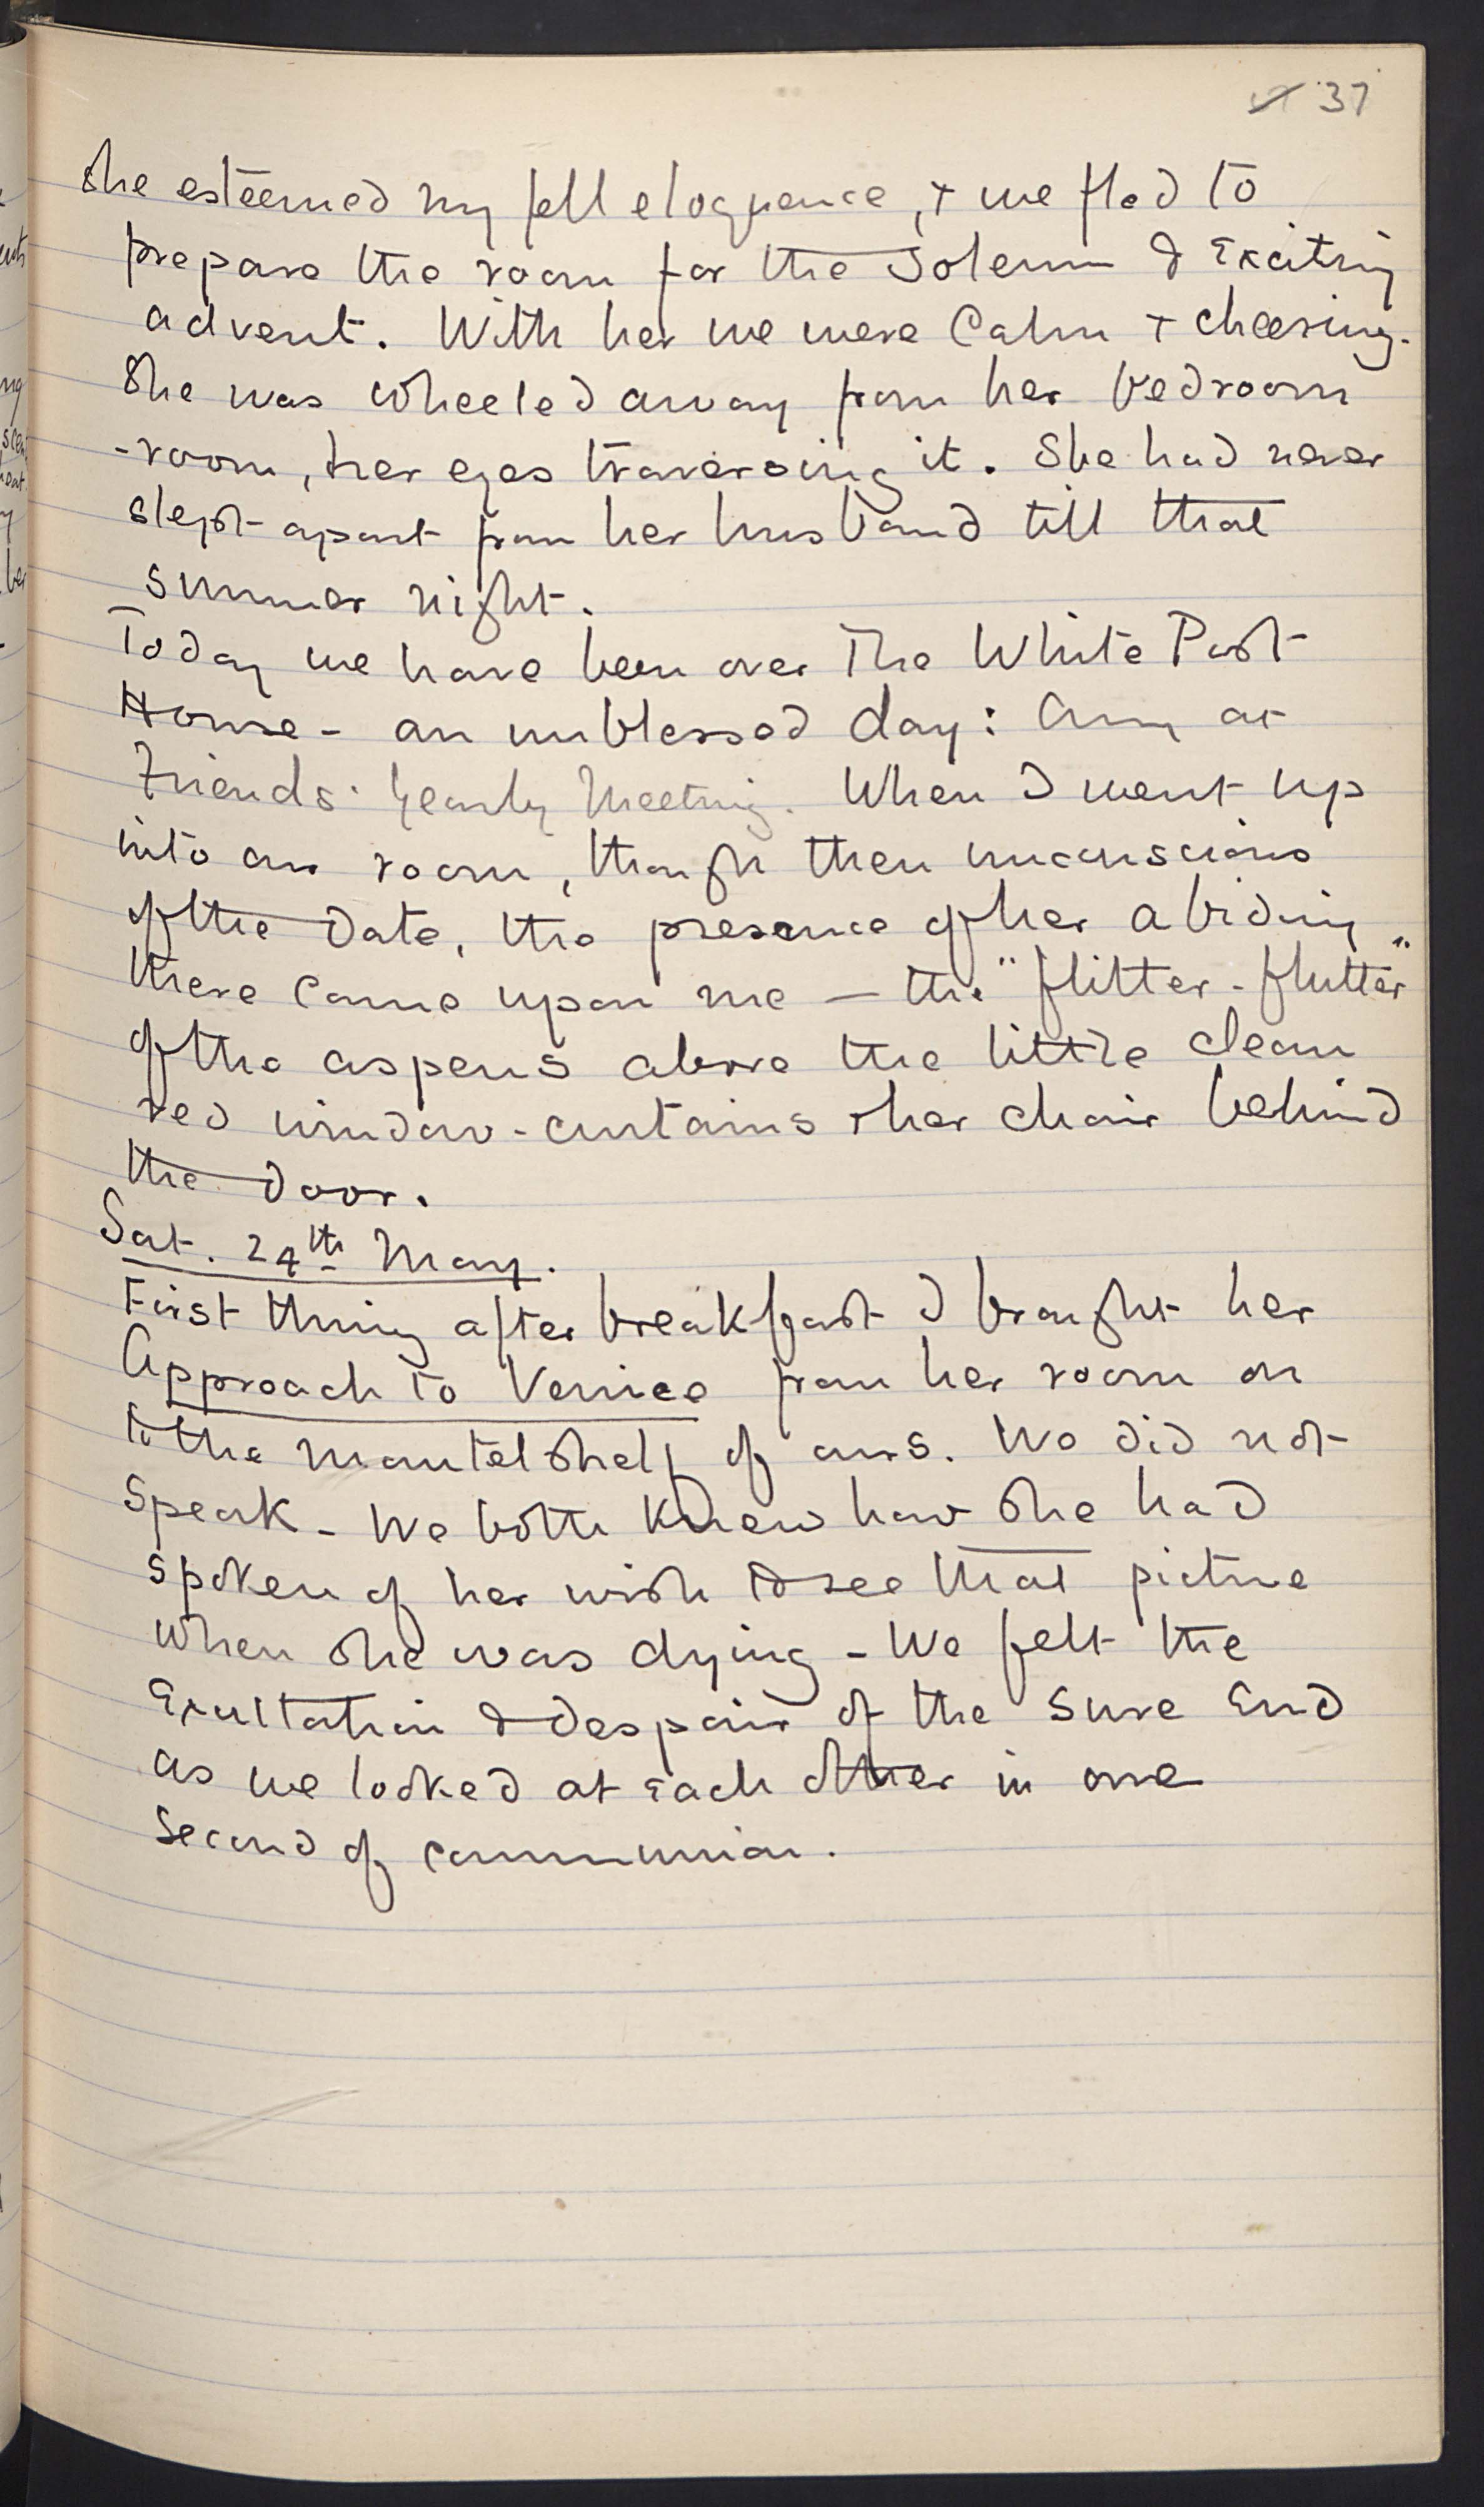 37
she esteemed my fell eloquence, + we fled to
prepare the room for the solemn & exciting
advent. With her we were calm + cheering.
She was wheeled away from her bedroom
-room, her eyes traversing it. She had never
slept apart from her husband till that
summer night.
Today we have been over The White Post
House - an unblessed day: Amy at
Friends' Yearly Meeting. When I went up
into our room, though then unconscious
of the date, the presence of her abiding
there came upon me — the "flitter-flutter"
of the aspens above the little clean
red window-curtains & her chair behind
the door.
Sat. 24th May.
First thing after breakfast I brought her
Approach to Venice from her room on
to the mantelshelf of ours. We did not
speak - We both knew how she had
spoken of her wish to see that picture
when she was dying - We felt the
Exultation & despair of the sure End
as we looked at each other in one
second of communion.